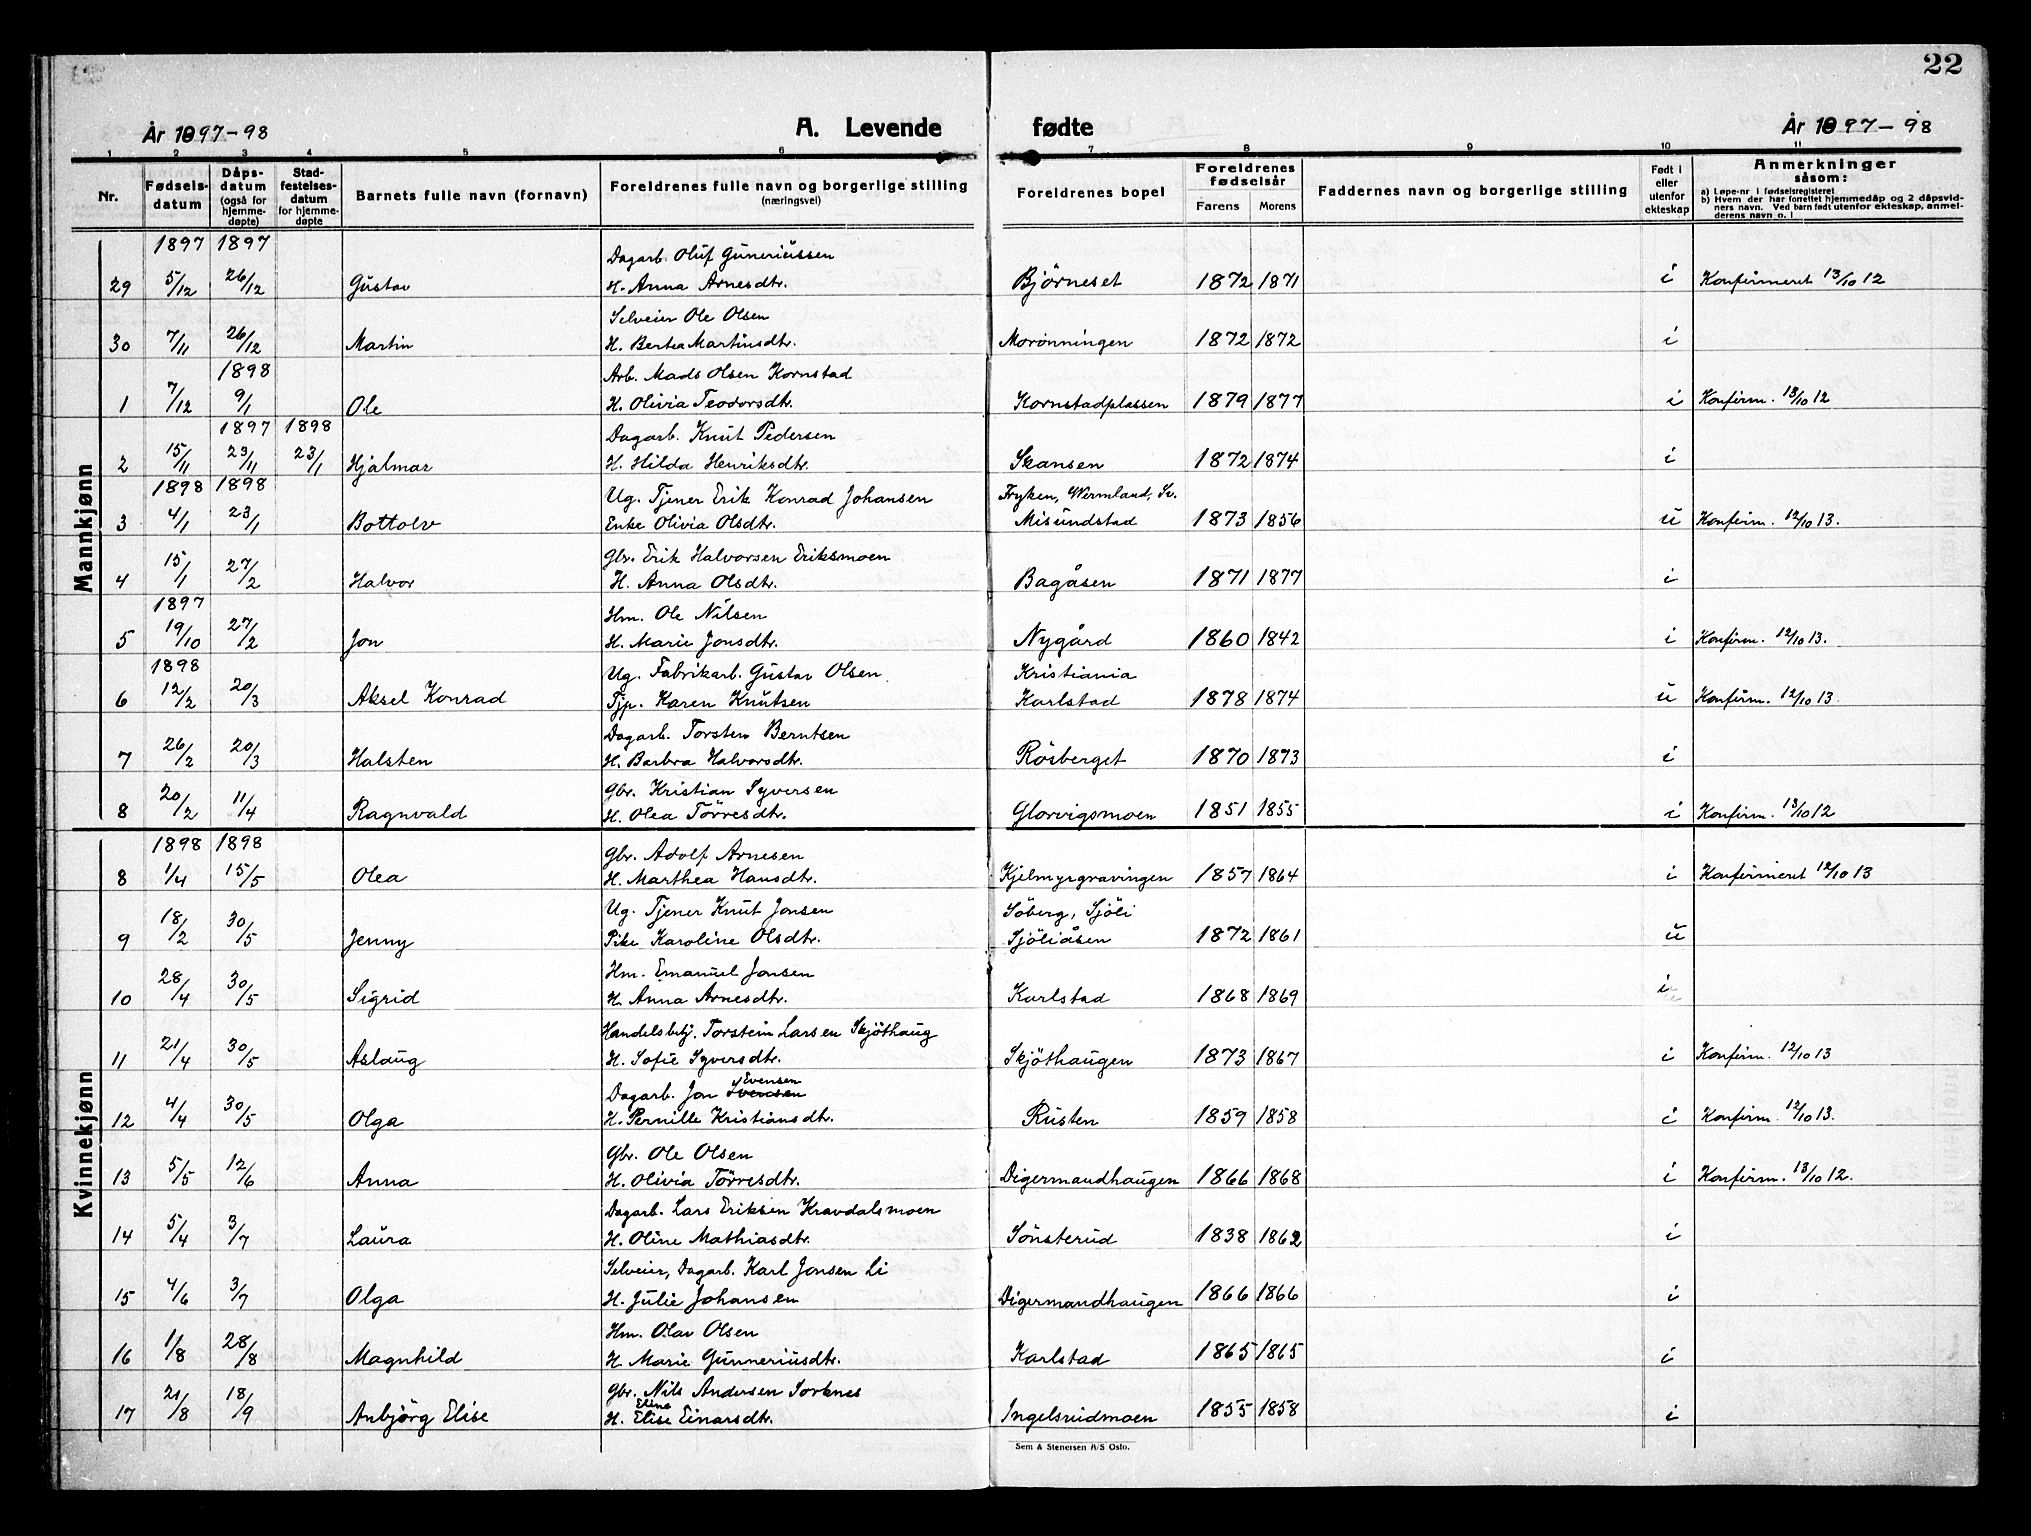 22
År 1897-98 A. Levende fødte År 1897-98
1 2 3 4 5 6 7 8 9 10 11
Nr. Fødsels-datum Dåps-datum (også for hjemme-døpte) Stad-festelses-datum for hjemme-døpte Barnets fulle navn (fornavn) Foreldrenes fulle navn og borgerlige stilling (næringsvei) Foreldrenes bopel Foreldrenes fødselsår Farens Morens Faddernes navn og borgerlige stilling Født i eller utenfor ekteskap Anmerkninger såsom:
a) Løpe-nr i fødselsregisteret
b) Hvem der har forrettet hjemmedåp og 2 dåpsvidners navn. Ved barn født utenfor ekteskap, anmelderens navn o. l
Mannkjønn
1897 1897 Dagarb. Oluf Guneriussen
29 5/12 26/12 Gustav H. Anna Arnesdtr. Bjørneset 1872 1871 i Konfirmeret 13/10 12
Selveier Ole Olsen
30 7/11 26/12 Martin H. Bertea Martinsdtr. Morønningen 1872 1872 i
1898 Arb. Mads Olsen Kornstad
1 7/12 9/1 Ole H. Olivia Teodorsdtr. Kornstadplassen 1879 1877 i Konfirm. 13/10 12
1897 1898 Dagarb. Knut Pedersen
2 15/11 23/11 23/1 Hjalmar H. Hilda Henriksdtr. Skansen 1872 1874 i
1898 1898 Ug. Tjener Erik Konrad Johansen Fryken, Wermland, Sv.
3 4/1 23/1 Bottolv Enke Olivia Olsdtr. Misundstad 1873 1856 u Konfirm. 12/10 13.
Gbr. Erik Halvorsen Eriksmoen
4 15/1 27/2 Halvor H. Anna Olsdtr. Bagåsen 1871 1877 i
1897 Hm. Ole Nilsen
5 19/10 27/2 Jon H. Marie Jonsdtr. Nygård 1860 1842 i Konfirm. 12/10 13.
1898 Ug. Fabrikarb. Gustav Olsen Kristiania
6 12/2 20/3 Aksel Konrad Tjp. Karen Knutsen Karlstad 1878 1874 u Konfirm. 12/10 13.
Dagarb. Torsten Berntsen
7 26/2 20/3 Halsten H. Barbra Halvorsdtr. Røsberget 1870 1873 i
Gbr. Kristian Syversen
8 20/2 11/4 Ragnvald H. Olea Tørresdtr. Glorvigsmoen 1851 1855 i Konfirm. 13/10 12
Kvinnekjønn
1898 1898 Gbr. Adolf Arnesen
8 1/4 15/5 Olea H. Marthea Hansdtr. Kjelmyrgravingen 1857 1864 i Konfirmeret 12/10 13
Ug. Tjener Knut Jonsen Søberg, Sjøli
9 18/2 30/5 Jenny Pike Karoline Olsdtr. Sjøliåsen 1872 1861 u
Hm. Emanuel Jonsen
10 28/4 30/5 Sigrid H. Anna Arnesdtr. Karlstad 1868 1869 i
Handelsbetj. Torstein Larsen Skjøthaug
11 21/4 30/5 Aslaug H. Sofie Syversdtr. Skjøthaugen 1873 1867 i Konfirm. 12/10 13
Evensen
Dagarb. Jon Svensen
12 4/4 30/5 Olga H. Pernille Kristiansdtr. Rusten 1859 1858 i Konfirm. 12/10 13.
Gbr. Ole Olsen
13 5/5 12/6 Anna H. Olivia Tørresdtr. Digermandhaugen 1866 1868 i Konfirm. 13/10 12.
Dagarb. Lars Eriksen Kravdalsmoen
14 5/4 3/7 Laura H. Oline Mathiasdtr. Sønsterud 1838 1862 i
Selveier, Dagarb. Karl Jonsen Li
15 4/6 3/7 Olga H. Julie Johansen Digermandhaugen 1866 1866 i
Hm. Olav Olsen
16 1/8 28/8 Magnhild H. Marie Gunneriusdtr. Karlstad 1865 1865 i
Gbr. Nils Andersen Sorknes
Eline
17 21/8 18/9 Anbjørg Elise H. Elise Einarsdtr. Ingelsrudmoen 1855 1858 i
Sem & Stenersen A/S Oslo.